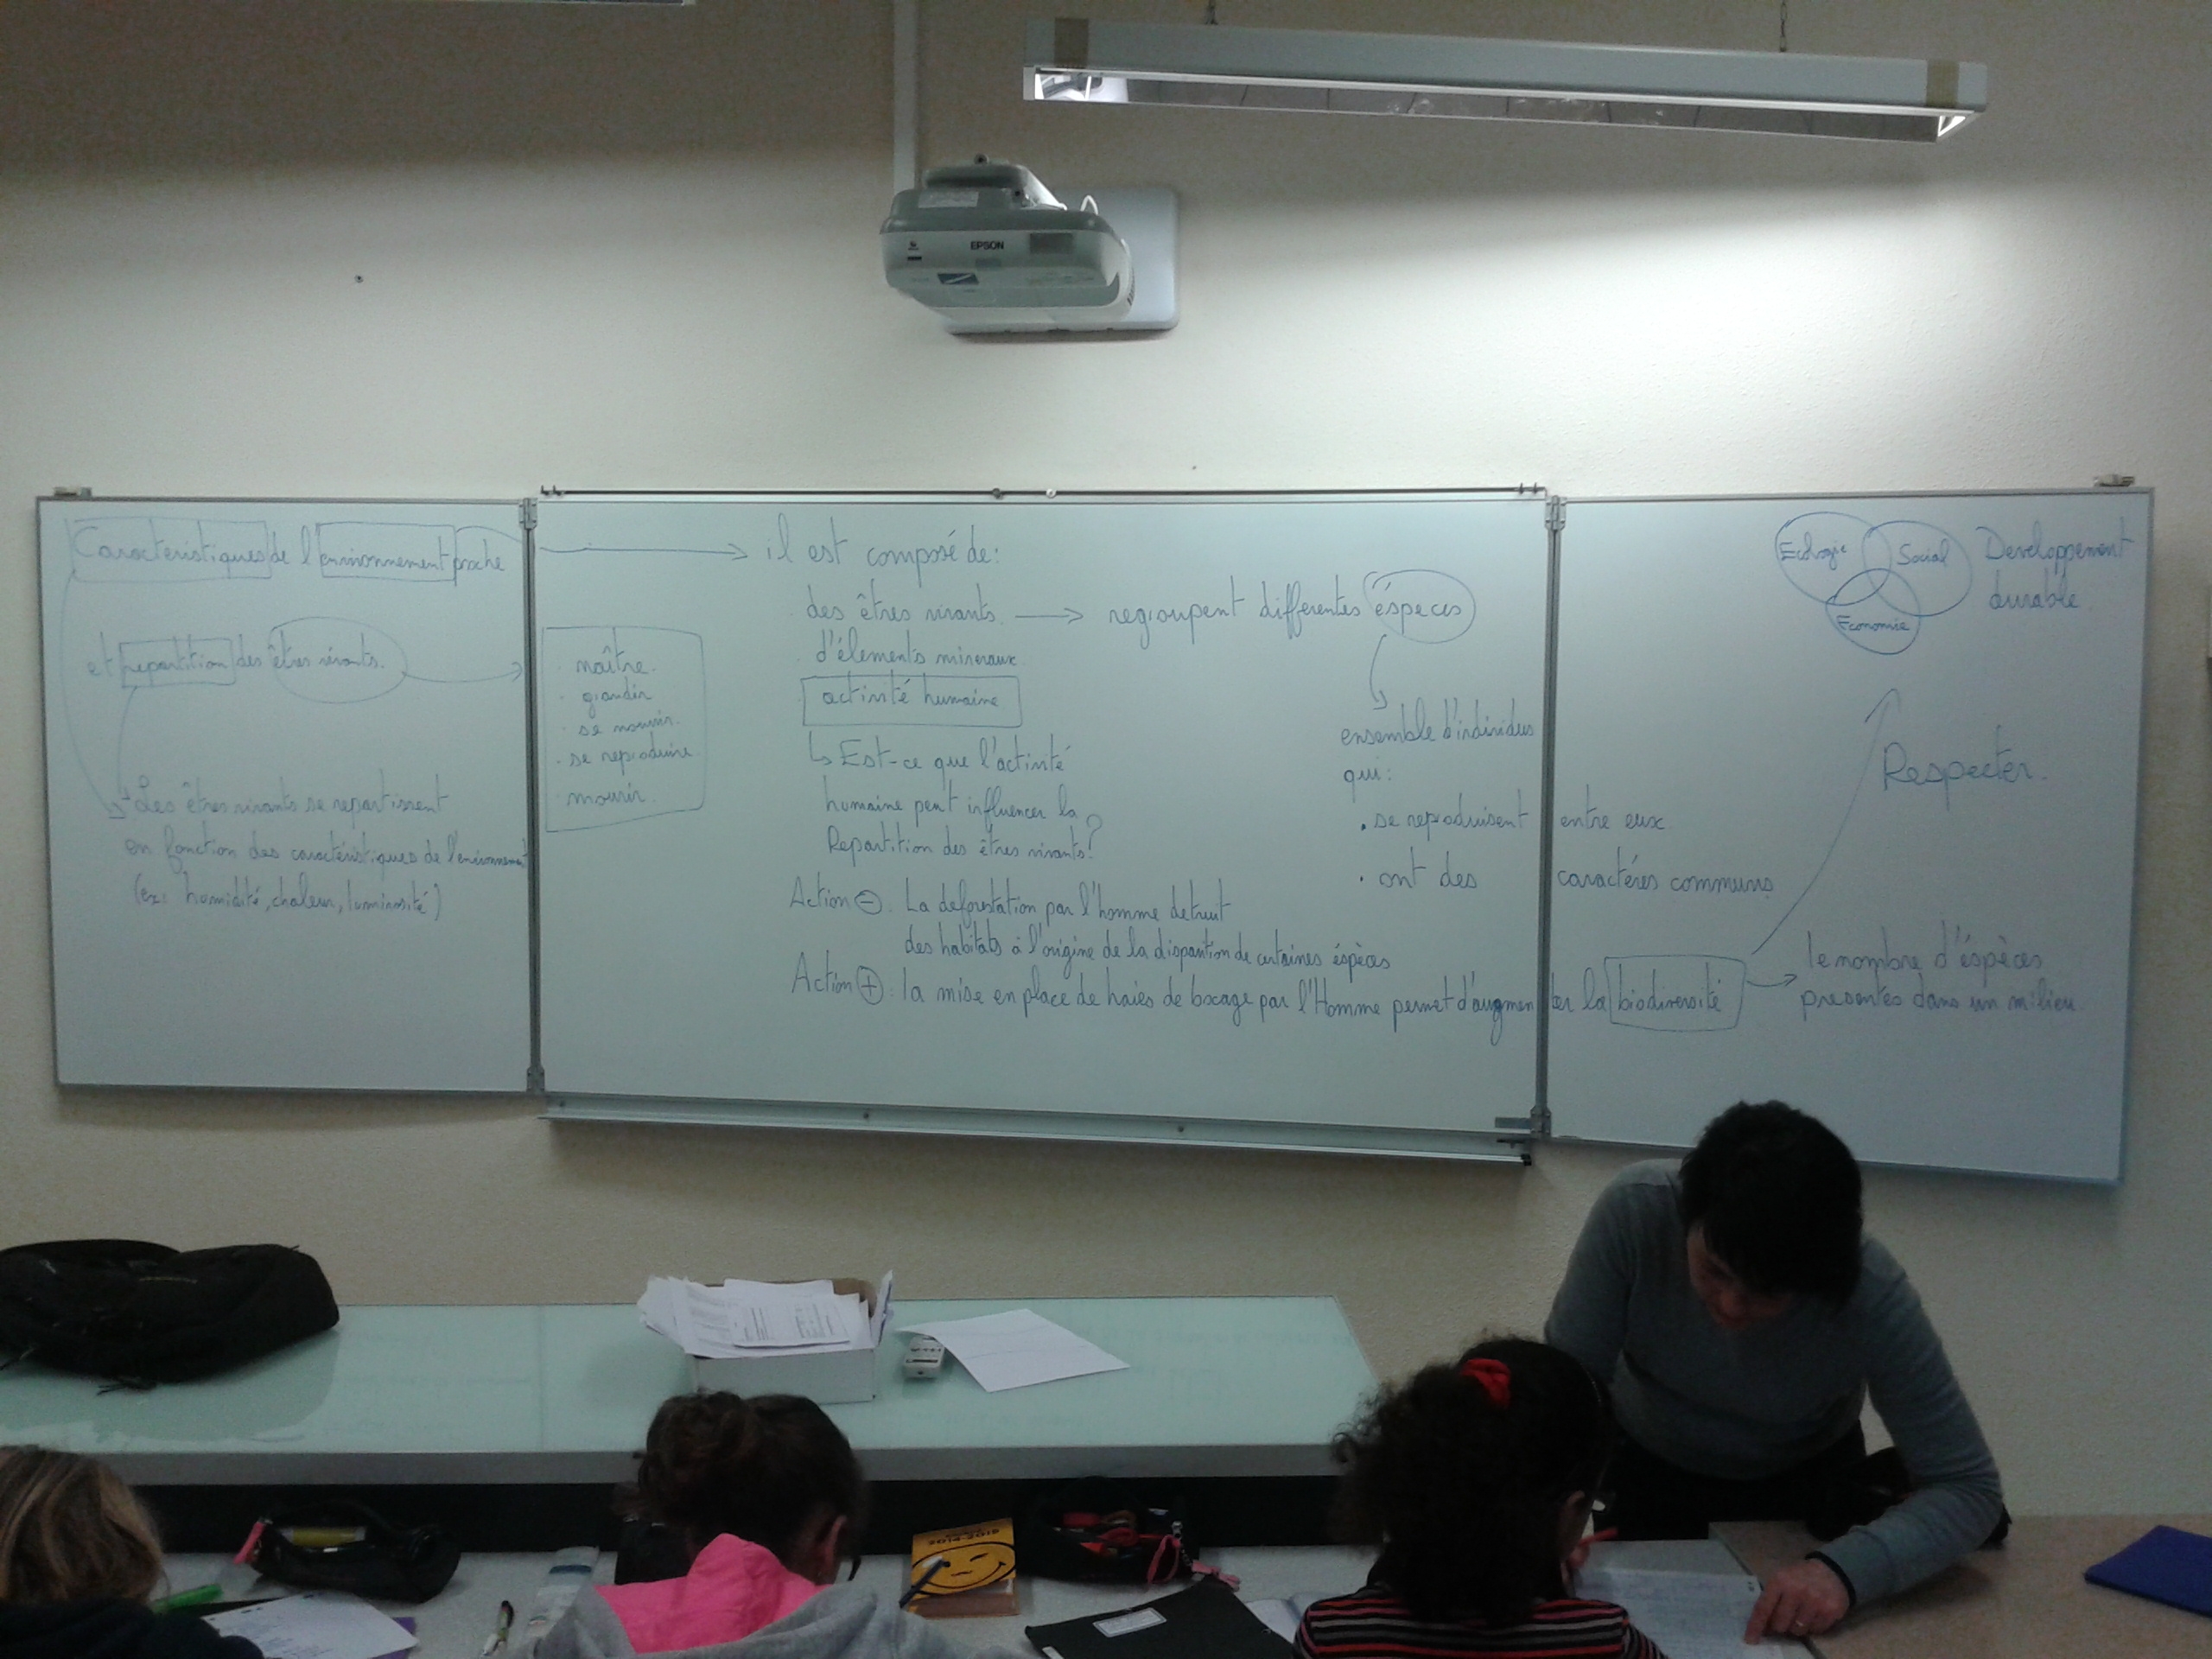 EPSON
Caractéristiques de l'environnement proche
et repartition des êtres vivants.
Les êtres vivants se repartissent
en fonction des caractéristiques de l'environnement
(ex: humidité, chaleur, luminosité)
. naître.
. grandir
. se nourrir.
. se reproduire.
. mourir.
il est composé de:
. des êtres vivants. → regroupent differentes éspeces
. d'élements mineraux.
. activité humaine
↳ Est-ce que l'activité
humaine peut influencer la
Repartition des êtres vivants?
Action ⊖. La deforestation par l'homme detruit
des habitats à l'origine de la disparition de certaines éspèces
Action ⊕: la mise en place de haies de bocage par l'Homme permet d'augmenter la biodiversité
ensemble d'individus
qui:
. se reproduisent entre eux
. ont des caractéres communs
Ecologie
Social
Economie
Developpement
durable.
Respecter.
le nombre d'éspèces
presentes dans un milieu.
2014-2015